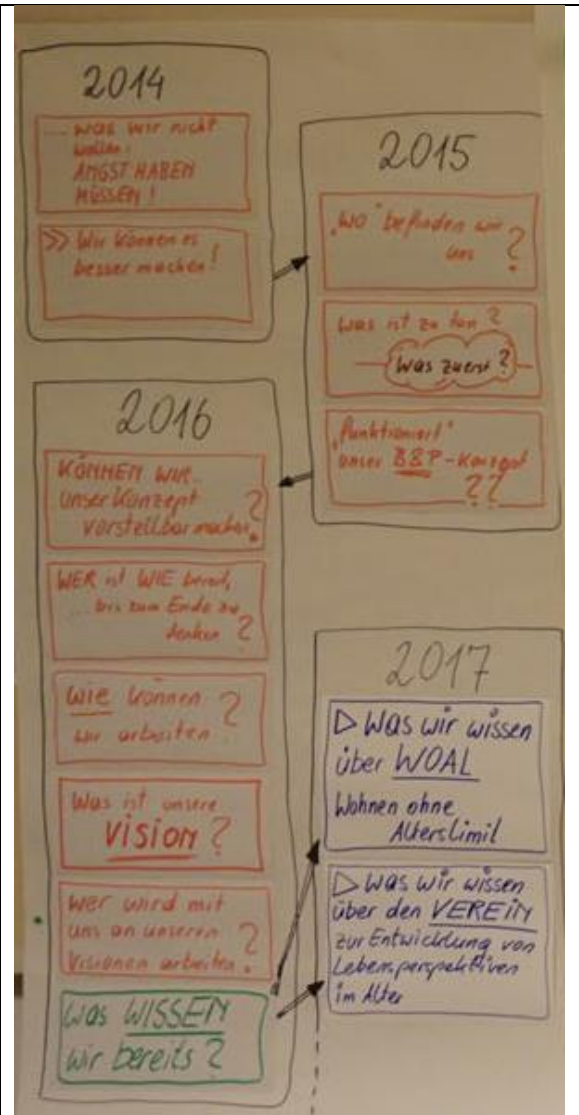 2014
... was wir nicht
wollen:
ANGST HABEN
MÜSSEN!
>> Wir können es
besser machen!
2015
„Wo" befinden wir
uns ?
Was ist zu tun ?
Was zuerst ?
„Funktioniert"
unser B&P-Konzept
??
2016
KÖNNEN WIR...
unser Konzept
vorstellbar machen ?
WER ist WIE bereit,
... bis zum Ende zu
denken ?
Wie können
wir arbeiten ?
Was ist unsere
VISION ?
Wer wird mit
uns an unseren
Visionen arbeiten ?
Was WISSEN
wir bereits ?
2017
▷ Was wir wissen
über WOAL
Wohnen ohne
Alterslimit
▷ Was wir wissen
über den VEREIN
zur Entwicklung von
Lebensperspektiven
im Alter